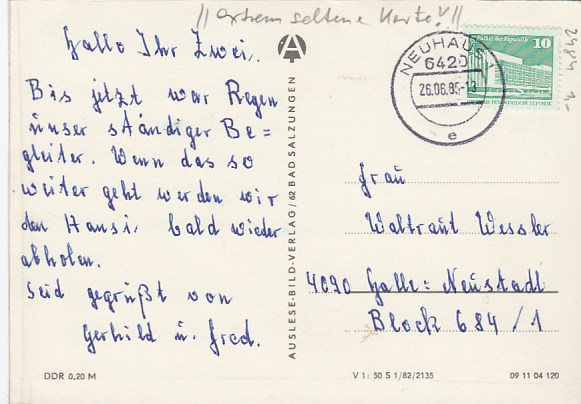 // extrem seltene Karte! //
Hallo Ihr Zwei,
Bis jetzt war Regen
unser ständiger Be=
gleiter. Wenn das so
weiter geht werden wir
den Hansi, bald wieder
abholen.
Seid gegrüßt von
Gerhild u. Fred.
DDR 0,20 M
A
AUSLESE-BILD-VERLAG/62 BAD SALZUNGEN
NEUHAUS 1
6420
26.06.85-13
e
Palast der Republik
10
Frau
Waltraut Wessler
4090 Halle-Neustadt
Block 684/1
V 1:50 S 1/82/2135
09 11 04 120